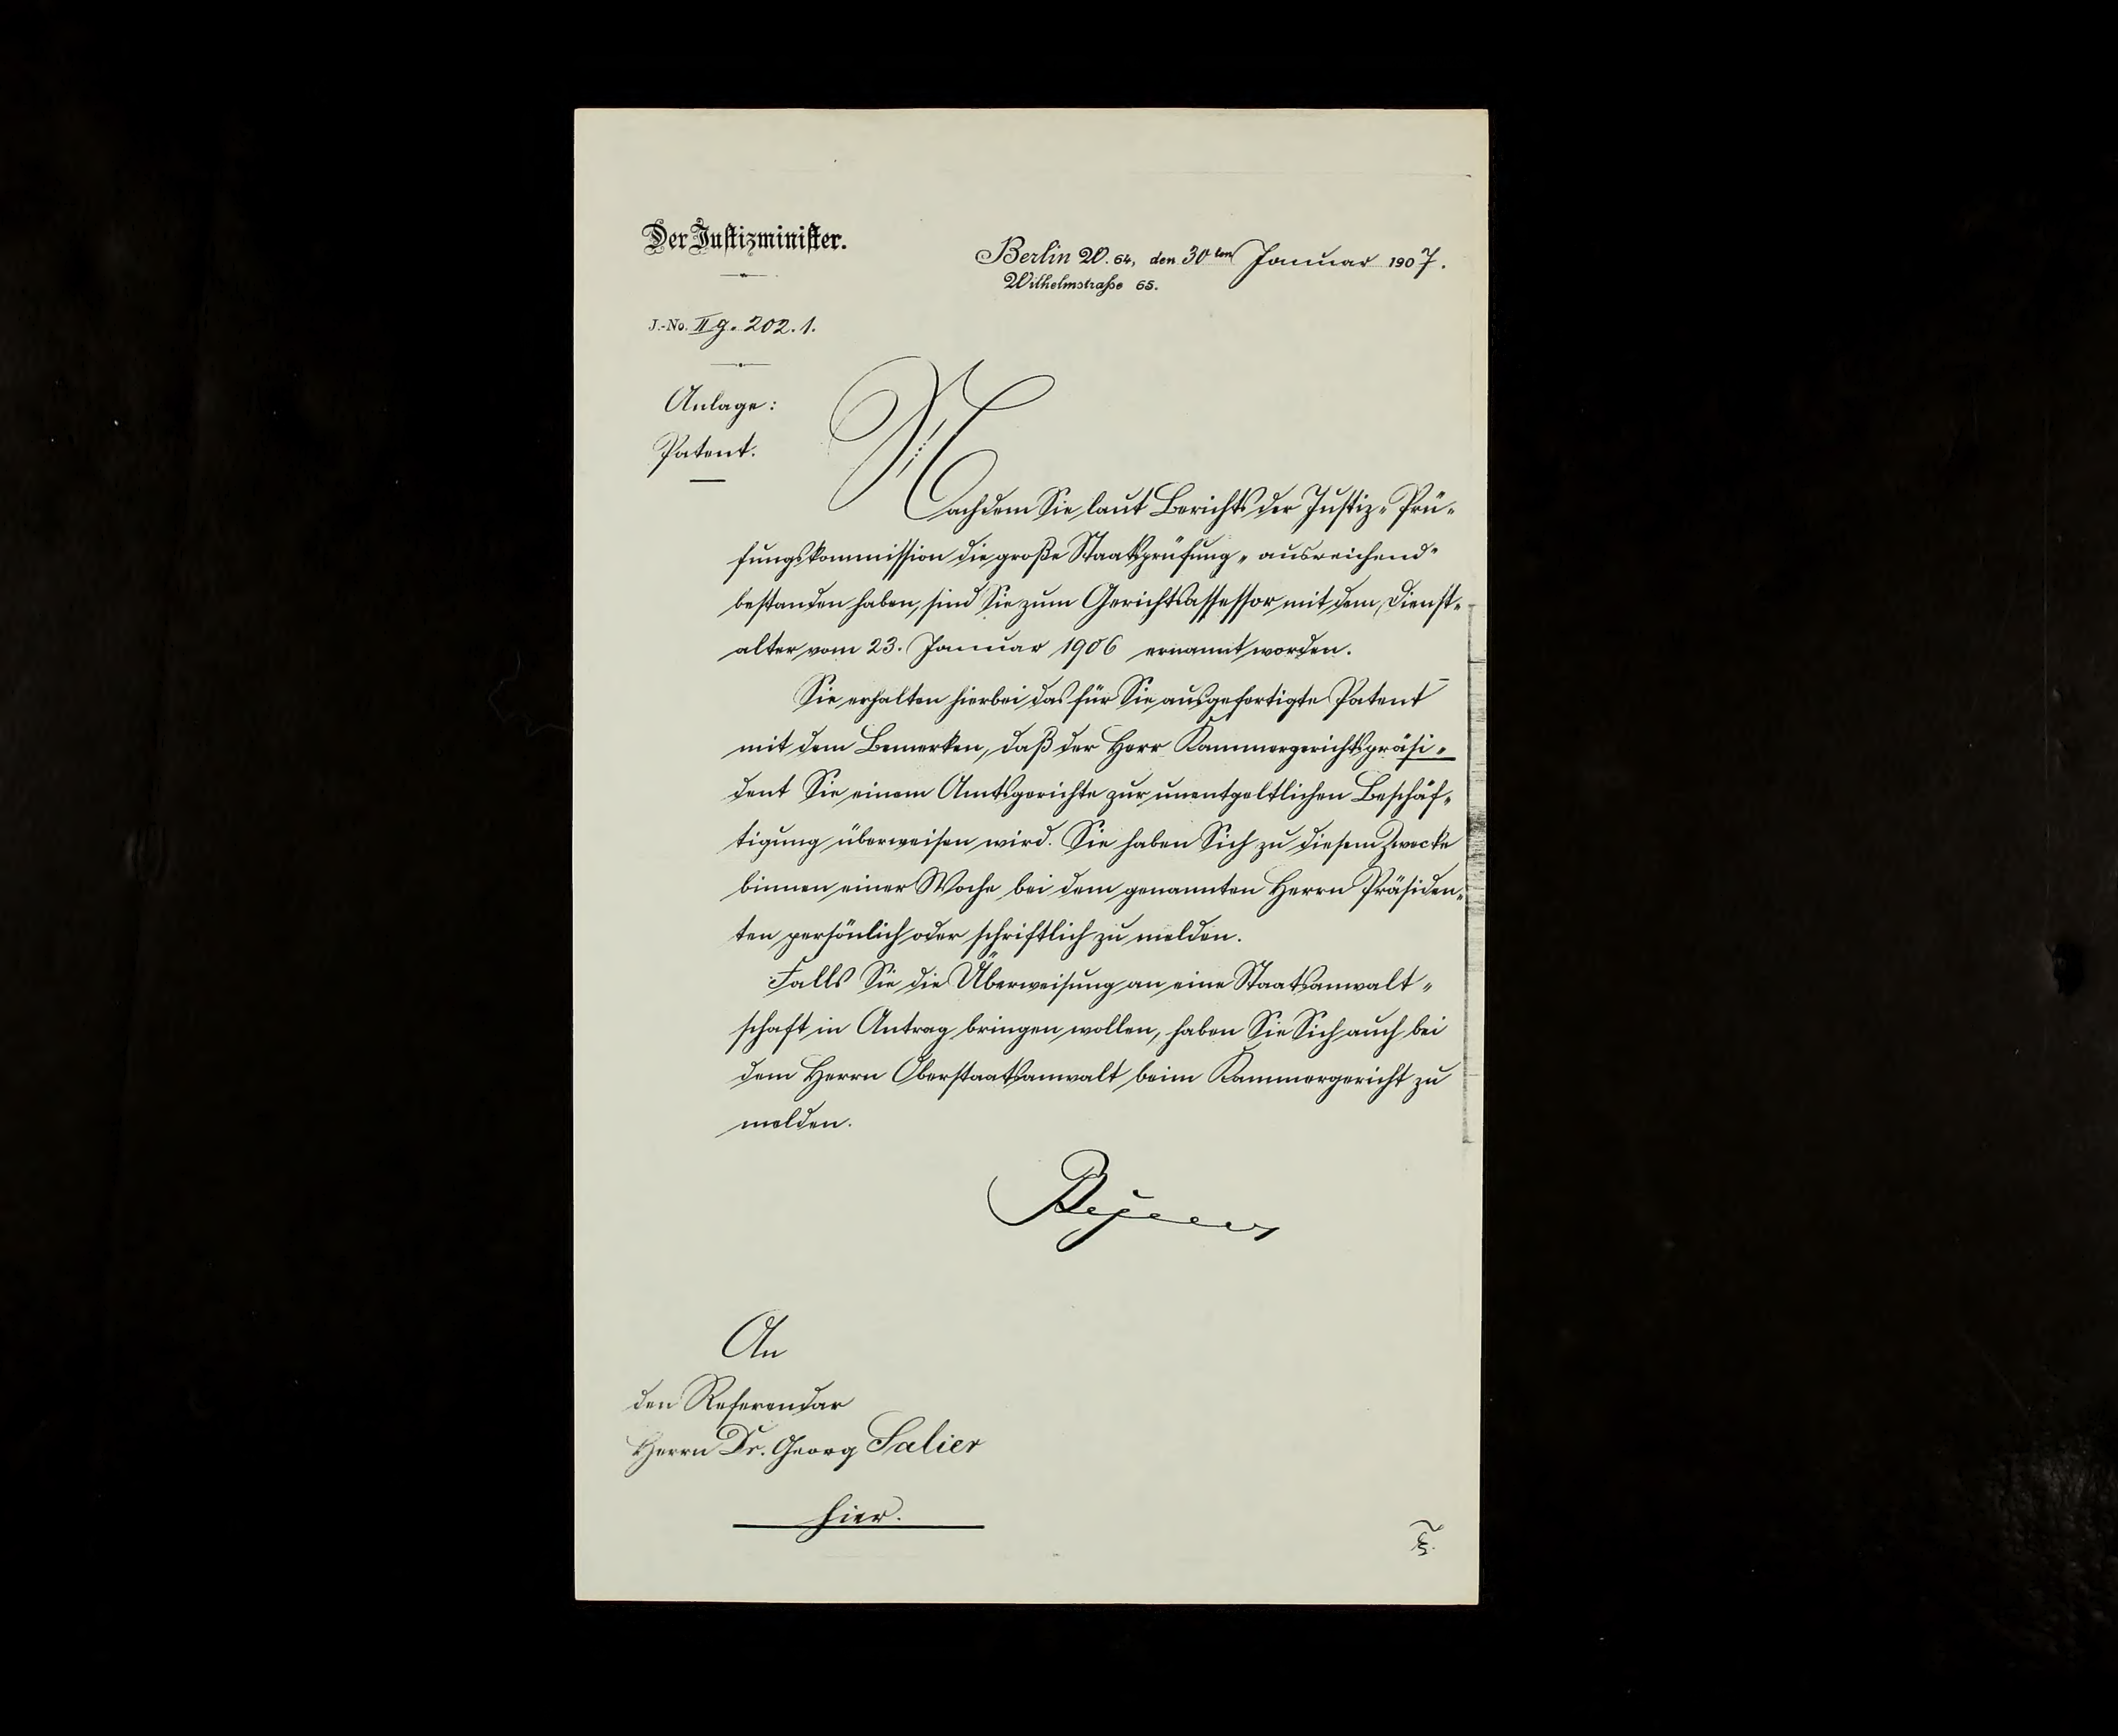 Der Justizminister.
Berlin W. 64, den 30ten Januar 1907.
Wilhelmstraße 65.
J.-No. II g. 202. 1.
Anlage:
Patent.
Nachdem Sie laut Berichts der Justiz-Prü-
fungskommission die große Staatsprüfung "ausreichend"
bestanden haben, sind Sie zum Gerichtsassessor mit dem Dienst-
alter vom 23. Januar 1906 ernannt worden.
Sie erhalten hierbei das für Sie ausgefertigte Patent
mit dem Bemerken, daß der Herr Kammergerichtspräsi-
dent Sie einem Amtsgerichte zur unentgeltlichen Beschäf-
tigung überweisen wird. Sie haben Sich zu diesem Zwecke
binnen einer Woche bei dem genannten Herrn Präsiden-
ten persönlich oder schriftlich zu melden.
Falls Sie die Überweisung an eine Staatsanwalt-
schaft in Antrag bringen wollen, haben Sie Sich auch bei
dem Herrn Oberstaatsanwalt beim Kammergericht zu
melden.
An
den Referendar
Herrn Dr. Georg Salier
hier.